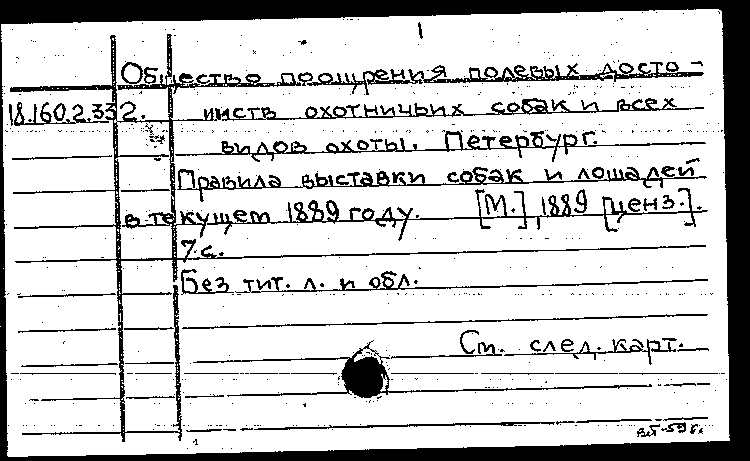 1
Общество поощрения полевых досто-
18.160.2.332. инств охотничьих собак и всех
видов охоты. Петербург.
Правила выставки собак и лошадей
в текущем 1889 году. [М.], 1889 [ценз.].
7 с.
Без тит. л. и обл.
См. след. карт.